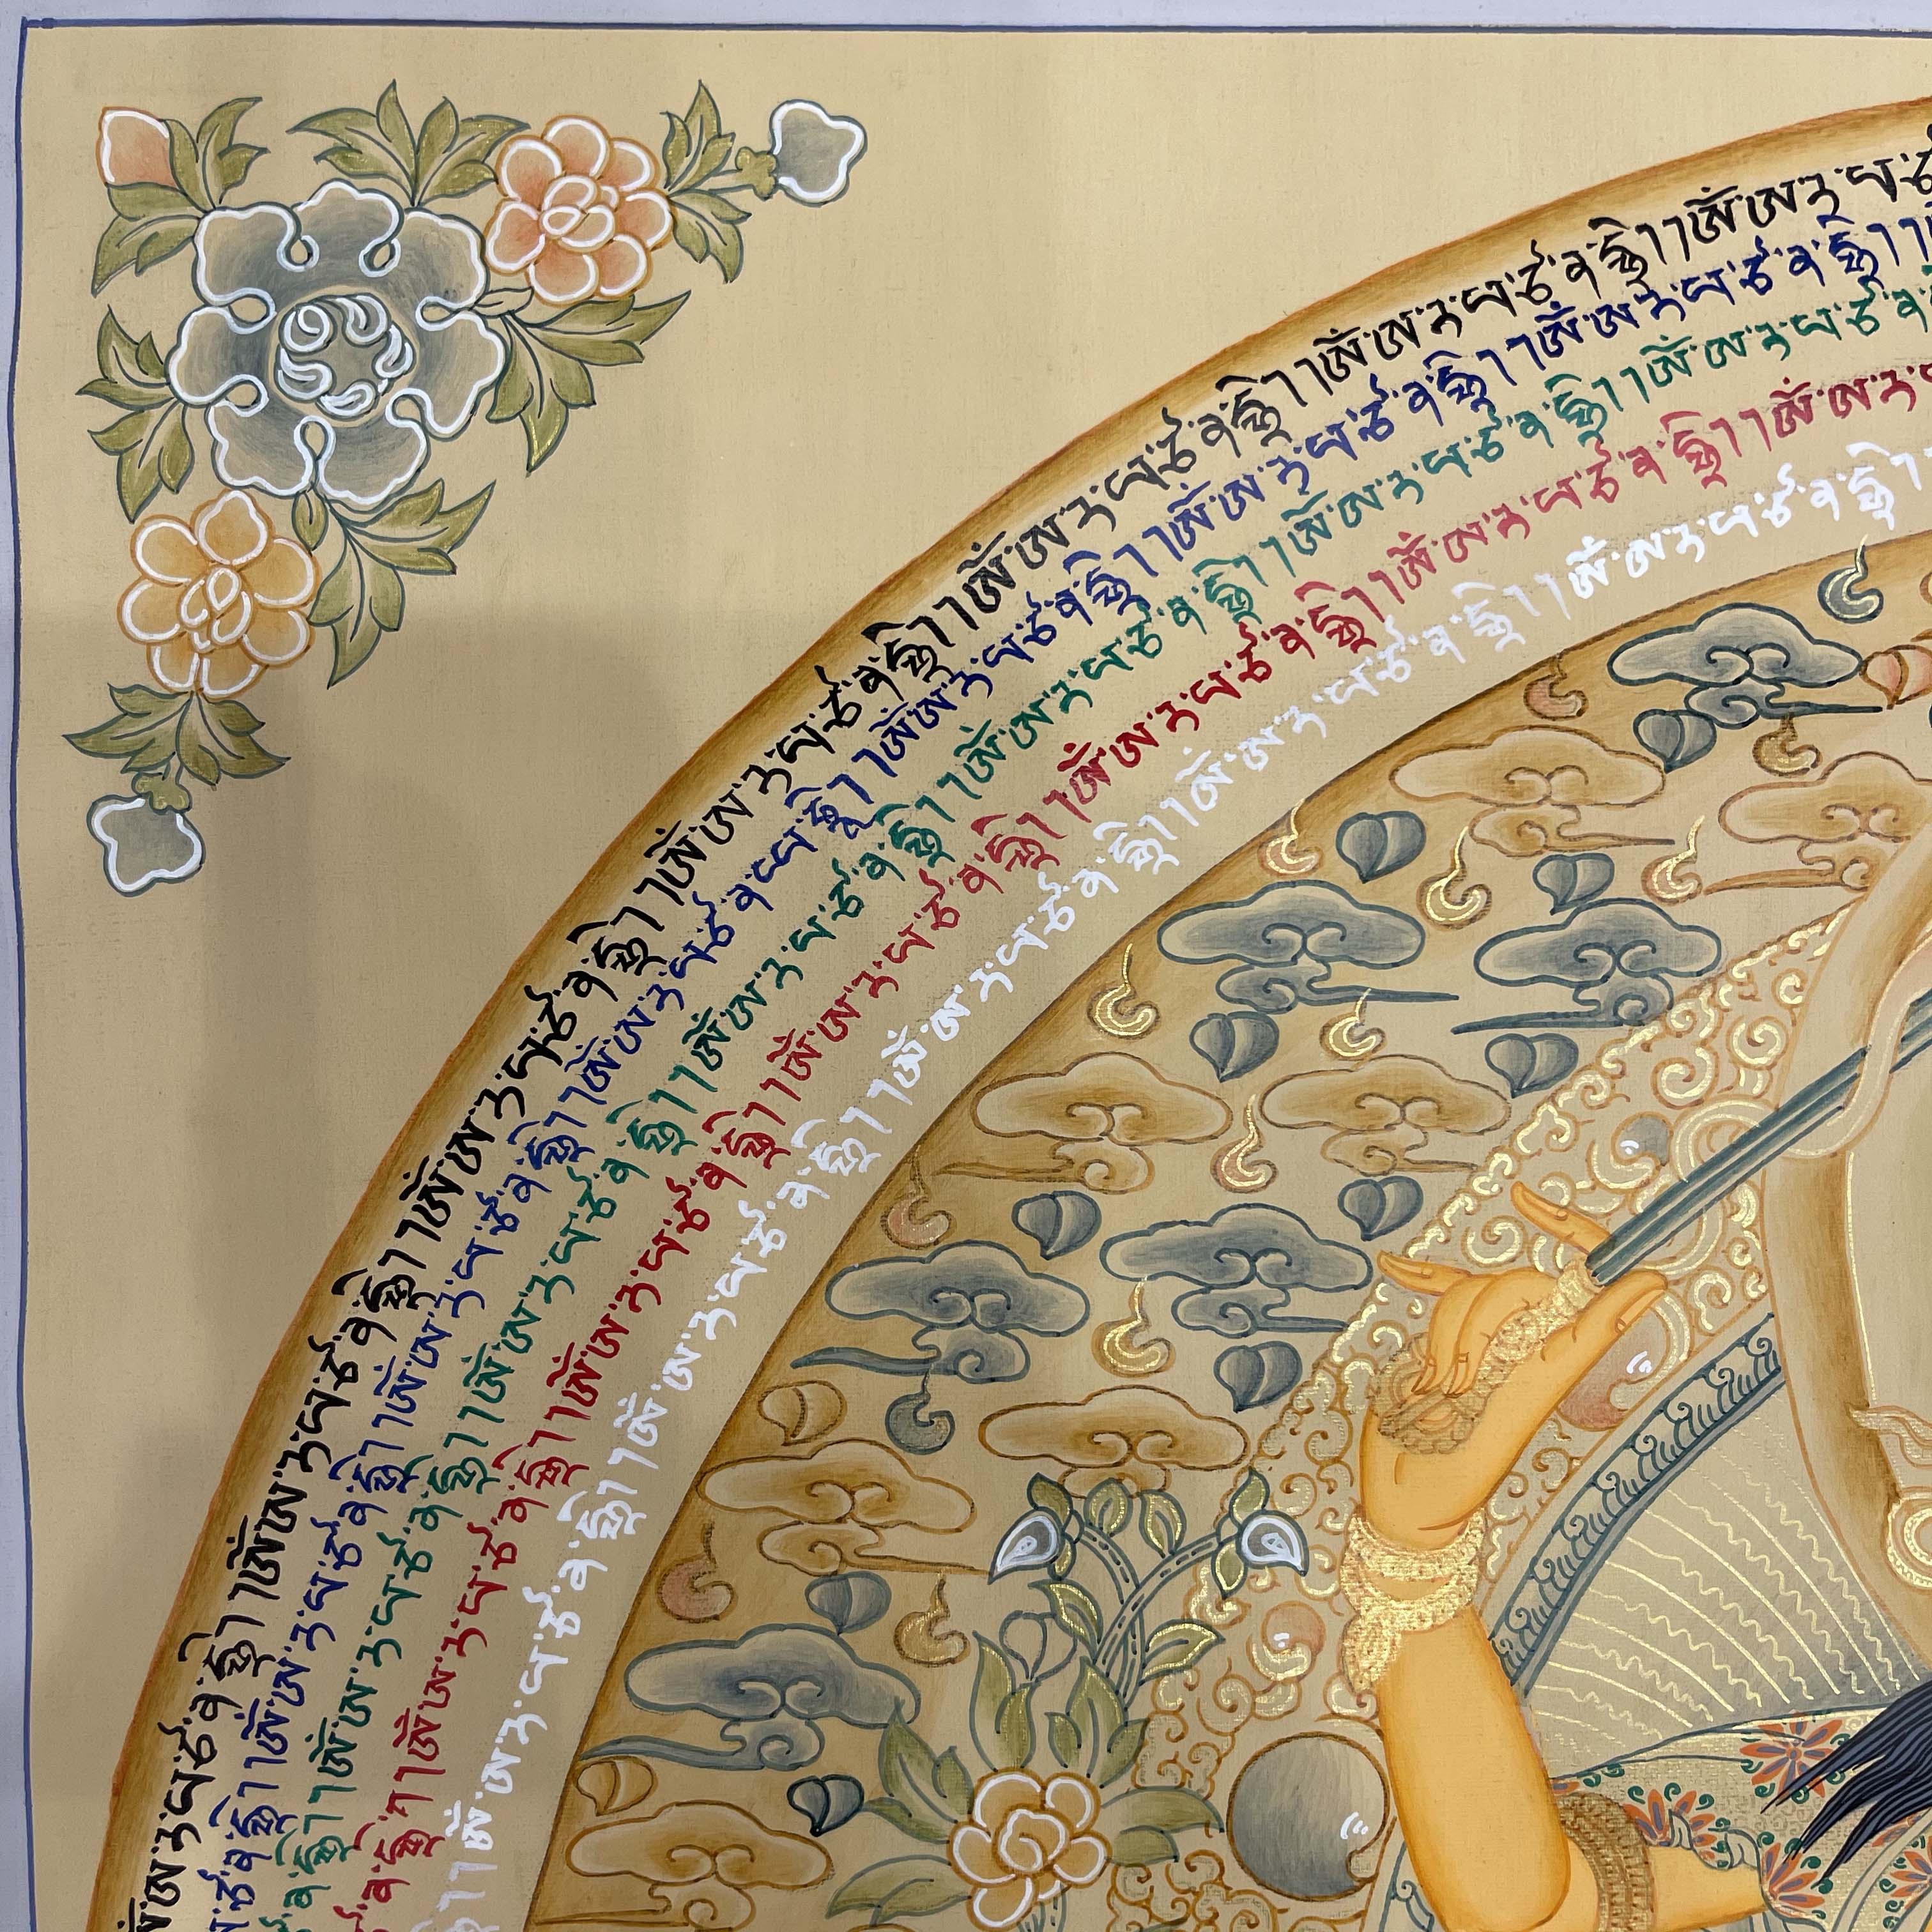 ཨོཾ་ཨ་ར་པ་ཙ་ན་དྷཱི། །ཨོཾ་ཨ་ར་པ་ཙ་ན་དྷཱི། །ཨོཾ་ཨ་ར་པ་ཙ་ན་དྷཱི། །ཨོཾ་ཨ་ར་པ་ཙ་ན་དྷཱི། །ཨོཾ་ཨ་ར་པ་ཙ་ན་དྷཱི། །ཨོཾ་ཨ་ར་པ་ཙ་ན་དྷཱི། །ཨོཾ་ཨ་ར་པ་ཙ
ཙ་ན་དྷཱི། །ཨོཾ་ཨ་ར་པ་ཙ་ན་དྷཱི། །ཨོཾ་ཨ་ར་པ་ཙ་ན་དྷཱི། །ཨོཾ་ཨ་ར་པ་ཙ་ན་པ་དྷཱི། །ཨོཾ་ཨ་ར་པ་ཙ་ན་དྷཱི། །ཨོཾ་ཨ་ར་པ་ཙ་ན་དྷཱི། །ཨོཾ་ཨ་ར་པ་ཙ་ན་དྷཱི། །
ན་དྷཱི། །ཨོཾ་ཨ་ར་པ་ཙ་ན་དྷཱི། །ཨོཾ་ཨ་ར་པ་ཙ་ན་དྷཱི། །ཨོཾ་ཨ་ར་པ་ཙ་ན་དྷཱི། །ཨོཾ་ཨ་ར་པ་ཙ་ན་དྷཱི། །ཨོཾ་ཨ་ར་པ་ཙ་ན་དྷཱི། །ཨོཾ་ཨ་ར་པ་ཙ་ན
ན་དྷཱི། །ཨོཾ་ཨ་ར་པ་ཙ་ན་དྷཱི། །ཨོཾ་ཨ་ར་པ་ཙ་ན་དྷཱི། །ཨོཾ་ཨ་ར་པ་ཙ་ན་དྷཱི། །ཨོཾ་ཨ་ར་པ་ཙ་ན་དྷཱི། །ཨོཾ་ཨ་ར་པ་ཙ་ན་དྷཱི། །ཨོཾ་ཨ་ར
དྷཱི། །ཨོཾ་ཨ་ར་པ་ཙ་ན་དྷཱི། །ཨོཾ་ཨ་ར་པ་ཙ་ན་དྷཱི། །ཨོཾ་ཨ་ར་པ་ཙ་ན་དྷཱི། །ཨོཾ་ཨ་ར་པ་ཙ་ན་དྷཱི། །ཨོཾ་ཨ་ར་པ་ཙ་ན་དྷཱི།